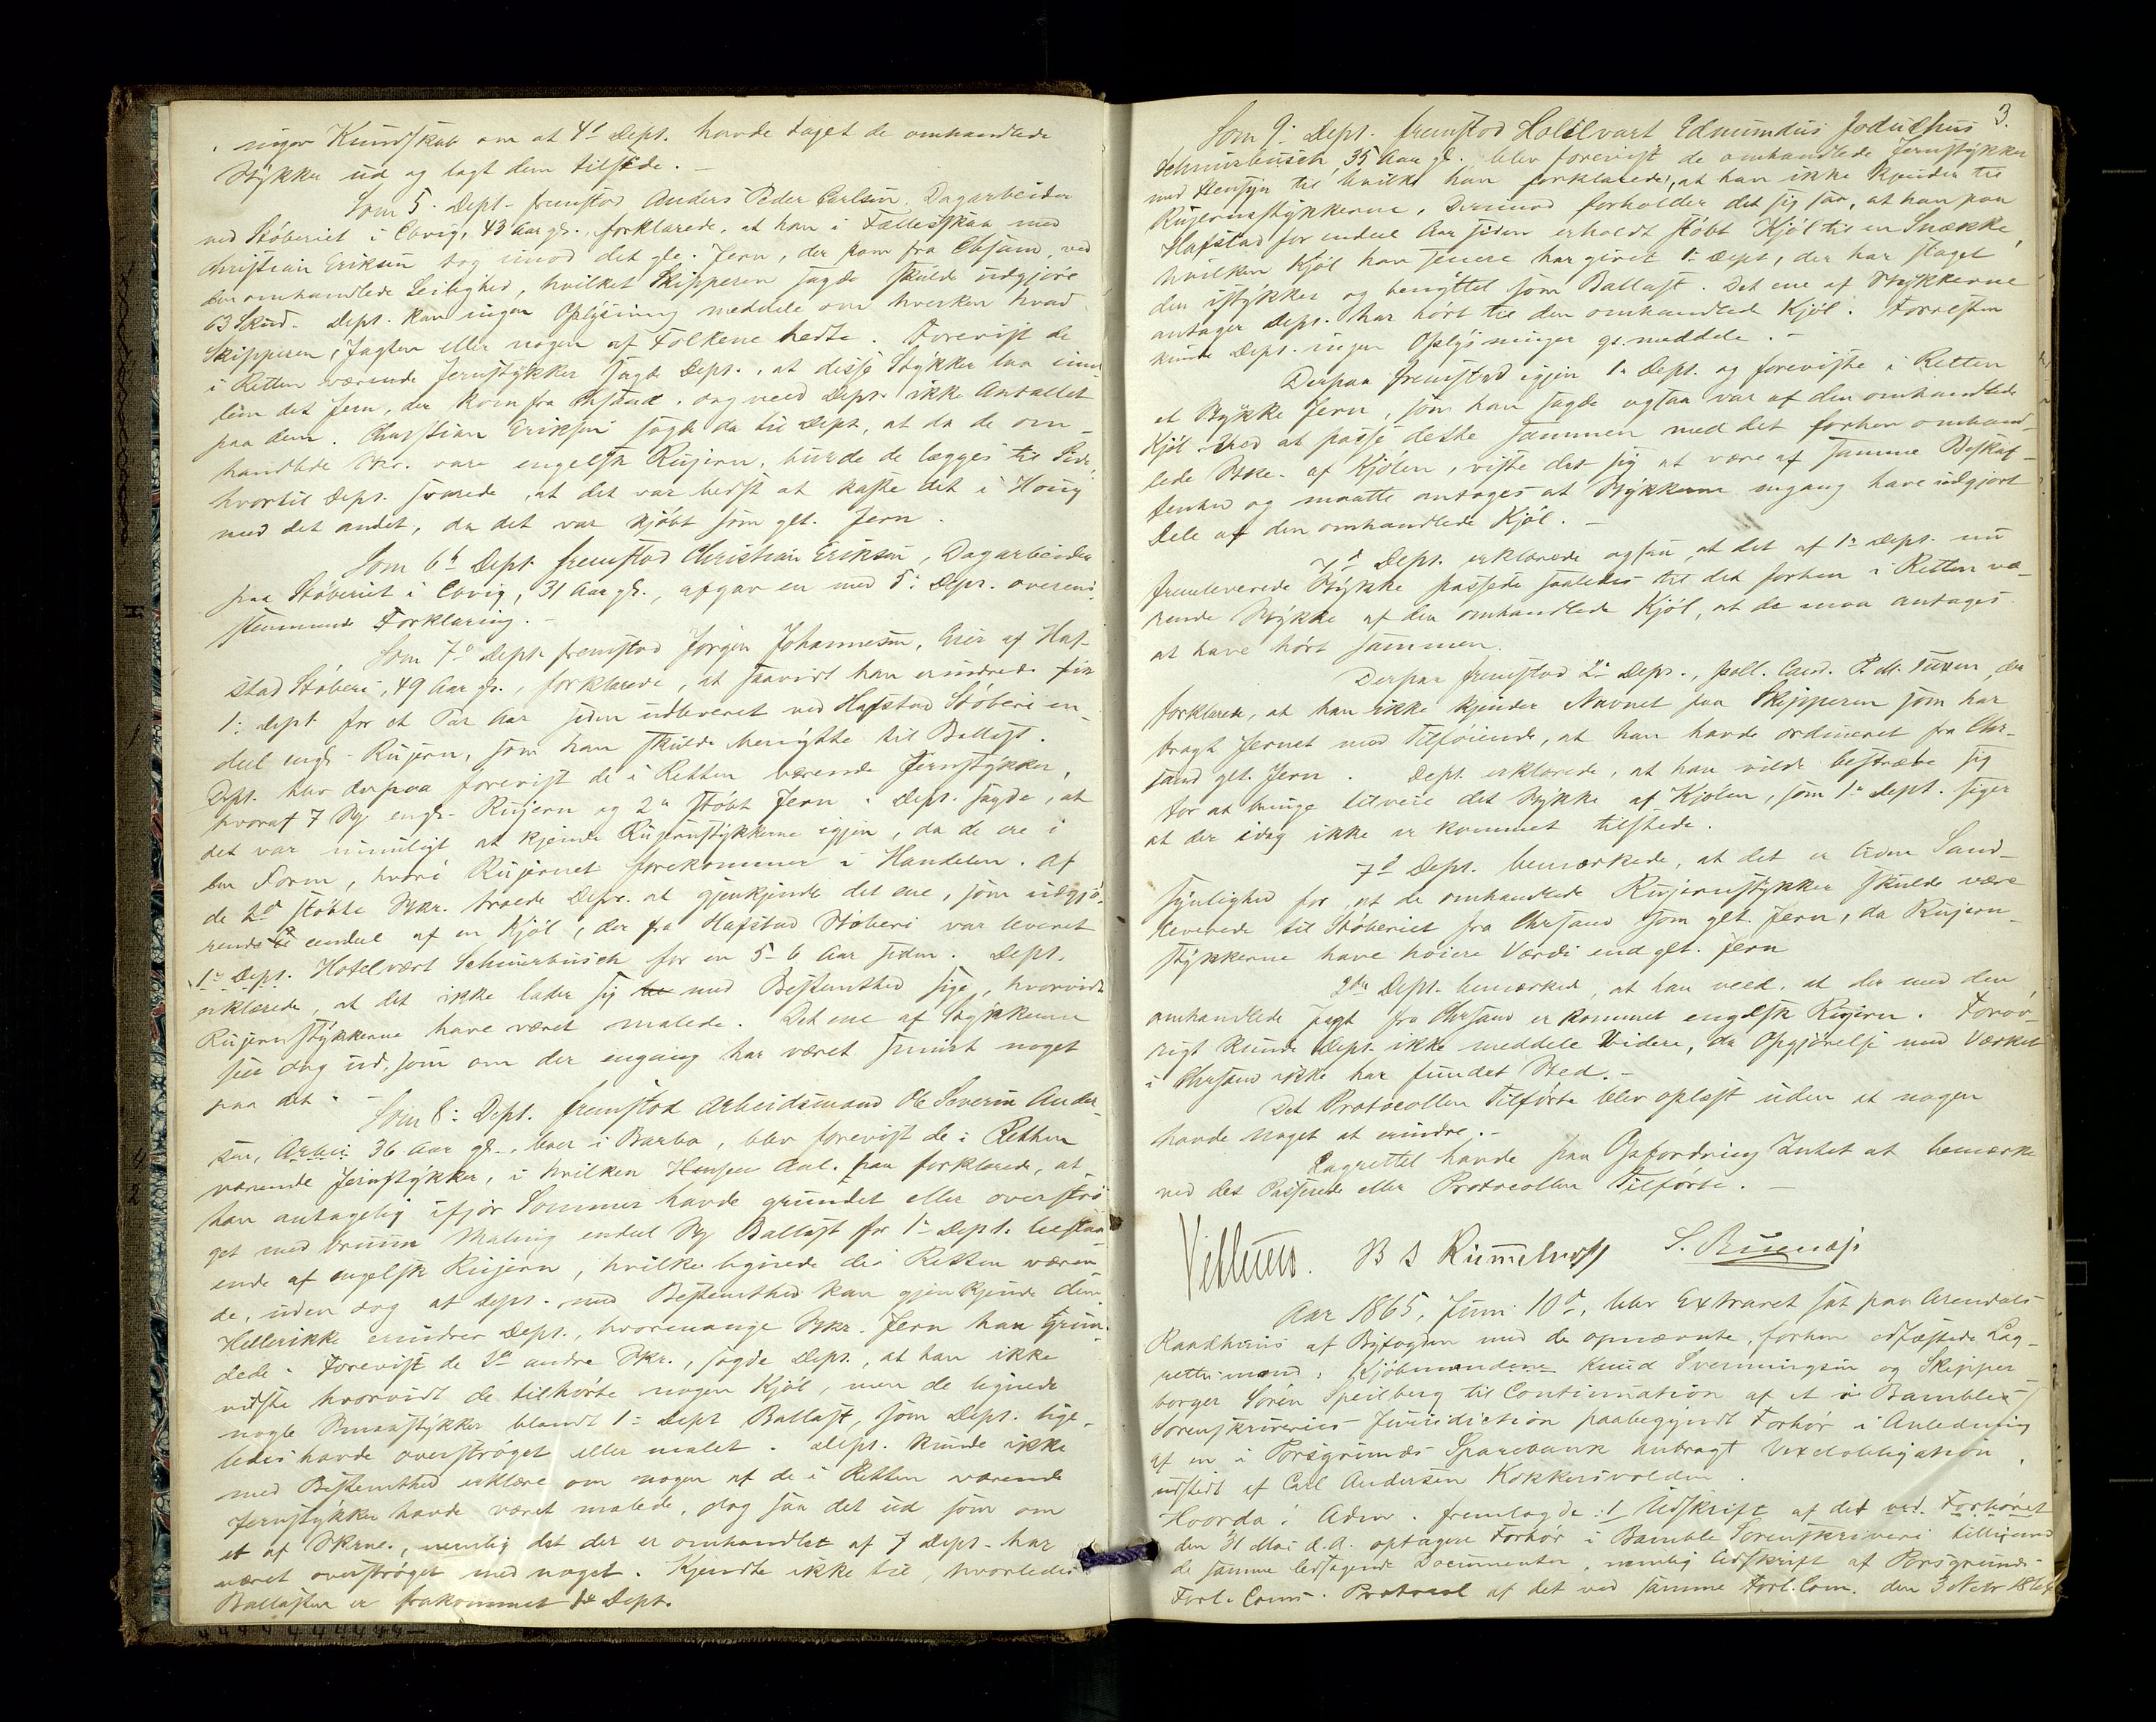 ingen Kundskab om at 4d Dept. havde taget de omhandlede
Stykker ud og lagt dem tilside. -
Som 5. Dept. fremstod Anders Peder Carlsen, Dagarbeider
ved Støberiet i 43 Aar gl., forklarede, at han i Fællesskab med
Christian Eriksen tog imod det gle. Jern, der kom fra Chrsand, ved
den omhandlede Leilighed, hvilket Skipperen sagde skulde udgjøre
63 Skpd. Dept. kan ingen Oplysning meddele om hverken hvad
Skipperen, Jagten eller nogen af Folkene hedte. Forevist de
i Retten værende Jernstykker sagde Dept., at disse Stykker laa imel-
lem det Jern, der kom fra Chrsand, dog veed Dept. ikke Antallet
paa dem. Christian Eriksen sagde da til Dept, at da de om-
handlede Stkr. vare engelsk Rujern, burde de lægges til Side,
hvortil Dept. svarede, at det var bedst at kaste det i Houg
med det andet, da det var kjøbt som glt. Jern.
Som 6te Dept. fremstod Christian Eriksen, Dagarbeider
paa Støberiet i 31 Aar gl., afgav en med 5. Dept. overens-
stemmende Forklaring. -
Som 7de Dept. fremstod Jørgen Johannesen, Eier af Haf-
stad Støberi, 49 Aar gl., forklarede, at saavidt han erindrede fik
1. Dept. for et Par Aar siden udleveret ved Hafstad Støberi en-
deel engl. Rujern, som han skulde benytte til Ballast.
Dept. blev derpaa forevist de i Retten værende Jernstykker,
hvoraf 7 St. engl. Rujern og 2 støbt Jern. Dept. sagde, at
det var umuligt at kjende Rujernstykkerne igjen, da de ere i
den Form, hvori Rujernet forekommer i Handelen. Af
de 2de støbte Stkr. troede Dept. at gjenkjende det ene, som udgjø-
rende endeel af en Kjøl, der fra Hafstad Støberi var leveret
1ste Dept. Hotelvært Schnurbusch for en 5-6 Aar siden. Dept.
erklærede, at det ikke lader sig med Bestemthed sige, hvorvidt
Rujernstykkerne have været malede. Det ene af Stykkerne
seer dog ud, som om der engang har været smurt noget
paa det. -
Som 8. Dept. fremstod Arbeidsmand Ole Severin Ander-
sen, 36 Aar gl., boer i Barbo, blev forevist de i Retten
værende Jernstykker, i hvilken Henseende han forklarede, at
han antagelig ifjor Sommer havde grundet eller overstrø-
get med bruun Maling endeel St. Ballast for 1ste Dept. bestaa-
ende af engelsk Rujern, hvilke lignede de i Retten væren-
de, uden dog at Dept. med Bestemthed kan gjenkjende dem.
Hellerikke erindrer Dept., hvormange Stkr. Jern han grun-
dede. Forevist de 2de andre Stkr., sagde Dept., at han ikke
vidste hvorvidt de tilhørte nogen Kjøl, men de lignede
nogle Smaastykker blandt 1ste Dept. Ballast, som Dept. lige-
ledes havde overstrøget eller malet. Dept. kunde ikke
med Bestemthed erklære om nogen af de i Retten værende
Jernstykker havde været malede, dog saa det ud som om
et af Stkrne., nemlig det der er omhandlet af 7 Dept. har
været overstrøget med noget. Kjendte ikke til, hvorledes
Ballasten er frakommet 1ste Dept.
3.
Som 9. Dept. fremstod Hotelvært Edmundus Joduchus
Schnurbusch, 35 Aar gl., blev forevist de omhandlede Jernstykker
med Hensyn til hvilke han forklarede, at han ikke kjender til
Rujernsstykkerne, derimod forholder det sig saa, at han paa
Hafstad for endeel Aar siden erholdt støbt Kjøl til en Snække,
hvilken Kjøl han senere har givet 1. Dept., der har slaaet
den istykker og benyttet som Ballast. Det ene af Stykkerne
antager Dept. har hørt til den omhandlede Kjøl. Forresten
kunde Dept. ingen Oplysninger meddele. -
Derpaa fremstod igjen 1. Dept. og foreviste i Retten
et Stykke Jern, som han sagde ogsaa var af den omhandlede
Kjøl. Ved at passe dette sammen med det forhen omhand-
lede Stkke. af Kjølen, viste det sig at være af samme Beskaf-
fenhed og maatte antages at Stykkerne engang have udgjort
Dele af den omhandlede Kjøl. -
7de Dept. erklærede ogsaa, at det af 1ste Dept. nu
fremleverede Stykke passede saaledes til det forhen i Retten væ-
rende Stykke af den omhandlede Kjøl, at de maa antages
at have hørt sammen.
Derpaa fremstod 2. Dept., poll. Cand. P. M. Tuxen, der
forklarede, at han ikke kjender Navnet paa Skipperen som har
bragt Jernet med Tilføiende, at han havde ordineret fra Chr-
sand glt. Jern. Dept. erklærede, at han vilde bestræbe sig
for at bringe tilveie det Stykke af Kjølen, som 1ste Dept. siger
at der idag ikke er kommet tilstede.
7de Dept. bemærkede, at det er liden Sand-
synlighed for, at de omhandlede Rujernstykker skulde være
leverede til Støberiet fra Chrsand som glt. Jern, da Rujern-
stykkerne have høiere Værdi end glt. Jern
2det Dept. bemærkede, at han veed, at der med den
omhandlede Jagt fra Chrsand er kommet engelsk Rujern. Forøv-
rigt kunde Dept. ikke meddele Videre, da Opgjørelse med Værket
i Chrsand ikke har fundet Sted. -
Det Protocollen Tilførte blev oplæst uden at nogen
havde Noget at erindre. -
Lagrettet havde paa Opfordring Intet at bemærke
ved det Passerede eller Protocollen Tilførte. -
B S Rummelhoff
Aar 1865, Juni 10de, blev Extraret sat paa Arendals
Raadhuus af Byfogden med de opnævnte, forhen edfæstede Lag-
rettesmænd, Kjøbmændene Knud Svenningsen og Skipper-
borger Søren Speilberg til Continuation af et i Bamble
Sorenskriveries Jurisdiction paabegyndt Forhør i Anledning
af en i Porsgrunds Sparebank anbragt Vexelobligation,
udstedt af Carl Andersen Kokkersvolden.
Hvorda: Adm. fremlagde: 1 Udskrift af det
den 31 Mai d.A. optagne Forhør i Bamble Sorenskriveri tilligemed
de samme ledsagende Documenter, nemlig Udskrift af Porsgrunds
Forl. Coms. Protocol af det ved samme Forl. Com. den 3 1864